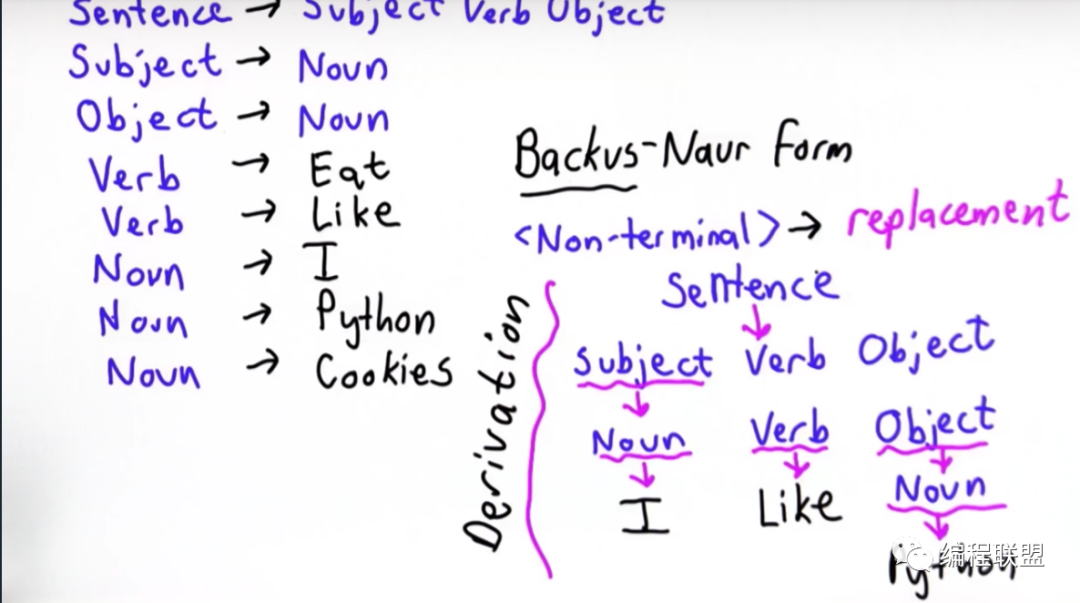 Sentence → Subject Verb Object
Subject → Noun
Object → Noun
Verb → Eat
Verb → Like
Noun → I
Noun → Python
Noun → Cookies
Backus-Naur Form
<Non-terminal> → replacement
Derivation
Sentence
Subject Verb Object
Noun Verb Object
I Like Noun
Python
编程联盟